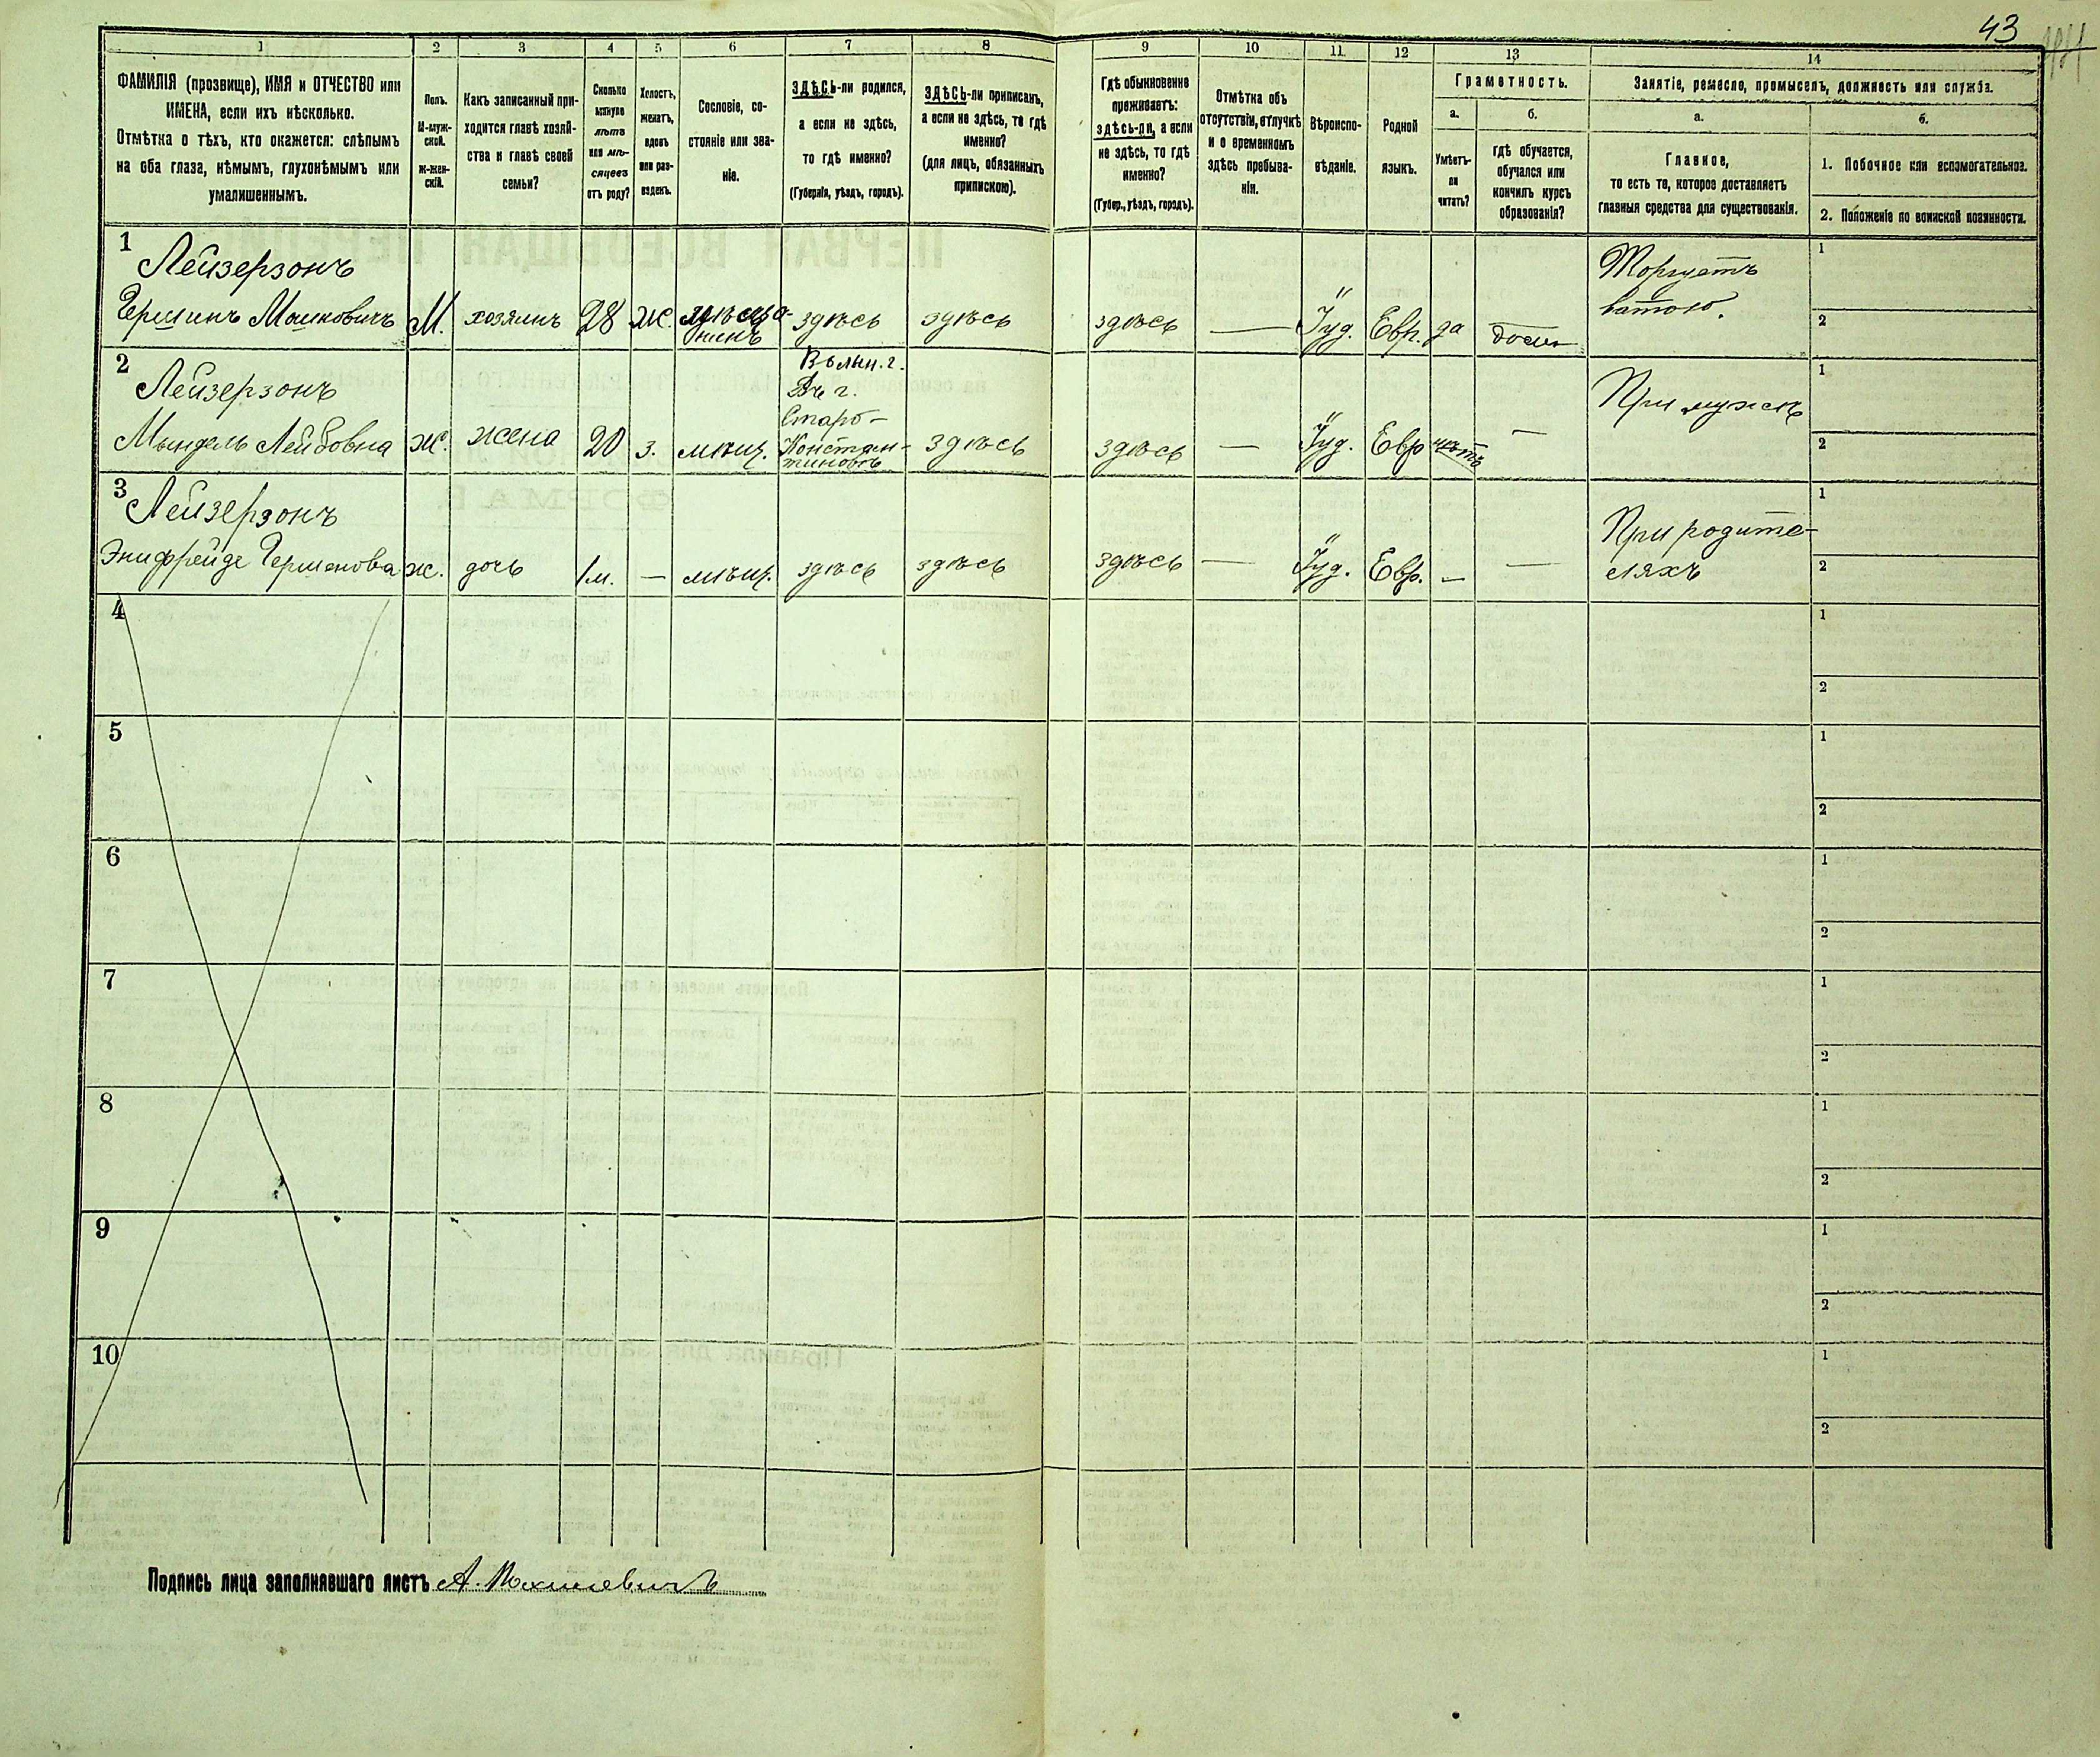 43
1
2
3
4
5
6
7
8
9
10
11
12
13
14
ФАМИЛІЯ (прозвище), ИМЯ и ОТЧЕСТВО или
ИМЕНА, если ихъ нѣсколько.
Отмѣтка о тѣхъ, кто окажется: слѣпымъ
на оба глаза, нѣмымъ, глухонѣмымъ или
умалишеннымъ.
Полъ.
М-муж-
ской.
Ж-жен-
скій.
Какъ записанный при-
ходится главѣ хозяй-
ства и главѣ своей
семьи?
Сколько
минуло
лѣтъ
или мѣ-
сяцевъ
отъ роду?
Холостъ,
женатъ,
вдовъ
или раз-
веденъ.
Сословіе, со-
стояніе или зва-
ніе.
ЗДѢСЬ-ли родился,
а если не здѣсь,
то гдѣ именно?
(Губернія, уѣздъ, городъ).
ЗДѢСЬ-ли приписанъ,
а если не здѣсь, то гдѣ
именно?
(для лицъ, обязанныхъ
припискою).
Гдѣ обыкновенно
проживаетъ:
здѣсь-ли, а если
не здѣсь, то гдѣ
именно?
(Губер., уѣздъ, городъ).
Отмѣтка объ
отсутствіи, отлучкѣ
и о временномъ
здѣсь пребыва-
ніи.
Вѣроиспо-
вѣданіе.
Родной
языкъ.
Грамотность.
а.
Умѣетъ-
ли
читать?
б.
гдѣ обучается,
обучался или
кончилъ курсъ
образованія?
Занятіе, ремесло, промыселъ, должность или служба.
а.
Главное,
то есть то, которое доставляетъ
главныя средства для существованія.
б.
1. Побочное или вспомогательное.
2. Положеніе по воинской повинности.
1
Лейзерзонъ
Гершинъ Мошковичъ М. хозяинъ 28 ж. мѣща-
нинъ
здѣсь здѣсь здѣсь — Іуд. Евр. да дома
Торгуетъ
ватою.
1
2
2
Лейзерзонъ
Мындель Лейбовна ж. жена 20 з. мѣщ.
Волын. г.
Въ г.
Старо-
Констан-
тиновѣ
здѣсь здѣсь — Іуд. Евр нѣтъ —
При мужѣ
1
2
3
Лейзерзонъ
Энифрейде Гершенова ж. дочь 1м. — мѣщ. здѣсь здѣсь здѣсь — Іуд. Евр. — —
При родите-
ляхъ
1
2
4
1
2
5
1
2
6
1
2
7
1
2
8
1
2
9
1
2
10
1
2
Подпись лица заполнявшаго листъ А.